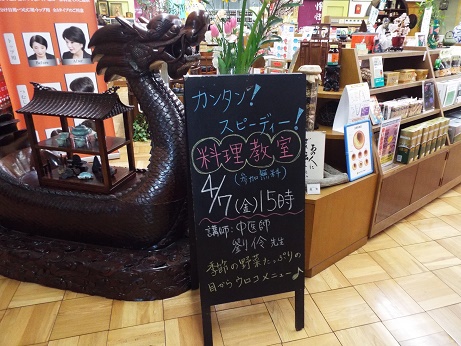 カンタン!
スピーディー!
料理教室
(参加無料)
4/7(金)15時
講師:中医師
劉伶先生
季節の野菜たっぷりの
目からウロコメニュー♪